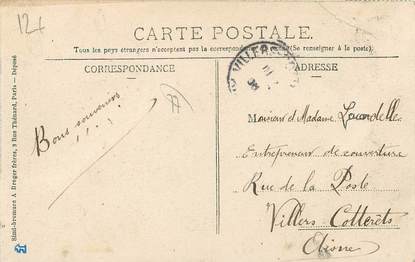 124
CARTE POSTALE
Tous les pays étrangers n'acceptent pas la correspondance (Se renseigner à la poste).
CORRESPONDANCE
ADRESSE
VILLERS
Bons souvenirs
Monsieur et Madame
Entrepreneur de couverture
Rue de la Poste
Villers Cotterets
Aisne
Simi-bromure A. Breger frères, 9 Rue Thénard, Paris - Déposé